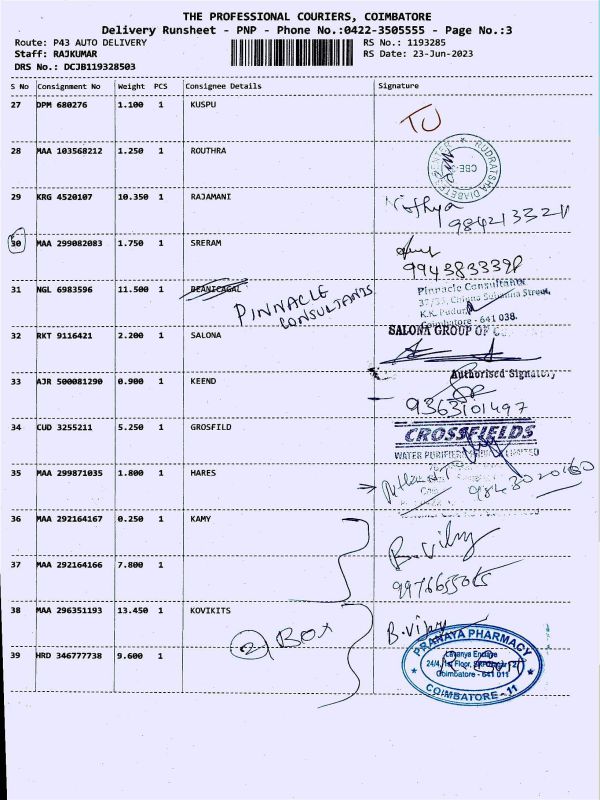 THE PROFESSIONAL COURIERS, COIMBATORE
Delivery Runsheet - PNP - Phone No.:0422-3505555 - Page No.:3
Route: P43 AUTO DELIVERY
RS No.: 1193285
Staff: RAJKUMAR
RS Date: 23-Jun-2023
DRS No.: DCJB119328503
S No Consignment No Weight PCS Consignee Details Signature
27 DPM 680276 1.100 1 KUSPU
TU
28 MAA 103568212 1.250 1 ROUTHRA
RUDRATSHA DIABETES CENTER
CBE
29 KRG 4520107 10.350 1 RAJAMANI
Nithya
30 MAA 299082083 1.750 1 SRERAM
31 NGL 6983596 11.500 1 BEANICAGAL
PINNACLE
CONSULTANTS
Pinnacle Consultants
Street,
K.K. Pudur,
Coimbatore - 641 038.
32 RKT 9116421 2.200 1 SALONA
SALONA GROUP OF
Authorised Signatory
33 AJR 500081290 0.900 1 KEEND
9363101497
34 CUD 3255211 5.250 1 GROSFILD
CROSSFIELDS
WATER PURIFIERS LIMITED
35 MAA 299871035 1.800 1 HARES
9843020160
36 MAA 292164167 0.250 1 KAMY
B.Vilny
37 MAA 292164166 7.800 1
38 MAA 296351193 13.450 1 KOVIKITS
② BOX
39 HRD 346777738 9.600 1
PRANAYA PHARMACY
Lavanya Enclave
24/4, 1st Floor,
Coimbatore - 641 011
COIMBATORE - 11